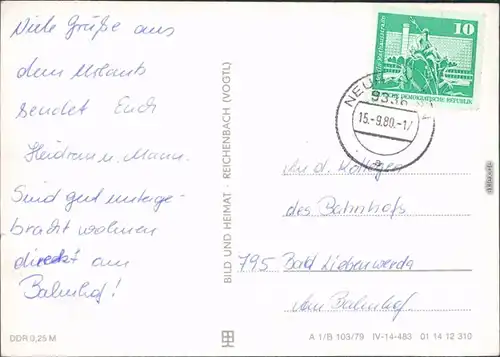 Viele Grüße aus
dem Urlaub
sendet Euch
Heidrun u. Mann.
Sind gut unterge-
bracht wohnen
direkt am
Bahnhof!
DDR 0,25 M
BILD UND HEIMAT · REICHENBACH (VOGTL)
10
DEUTSCHE DEMOKRATISCHE REPUBLIK
15.-9.80.-17
a
An d. Kollegen
des Bahnhofs
795 Bad Liebenwerda
Am Bahnhof.
A 1/B 103/79 IV-14-483 01 14 12 310